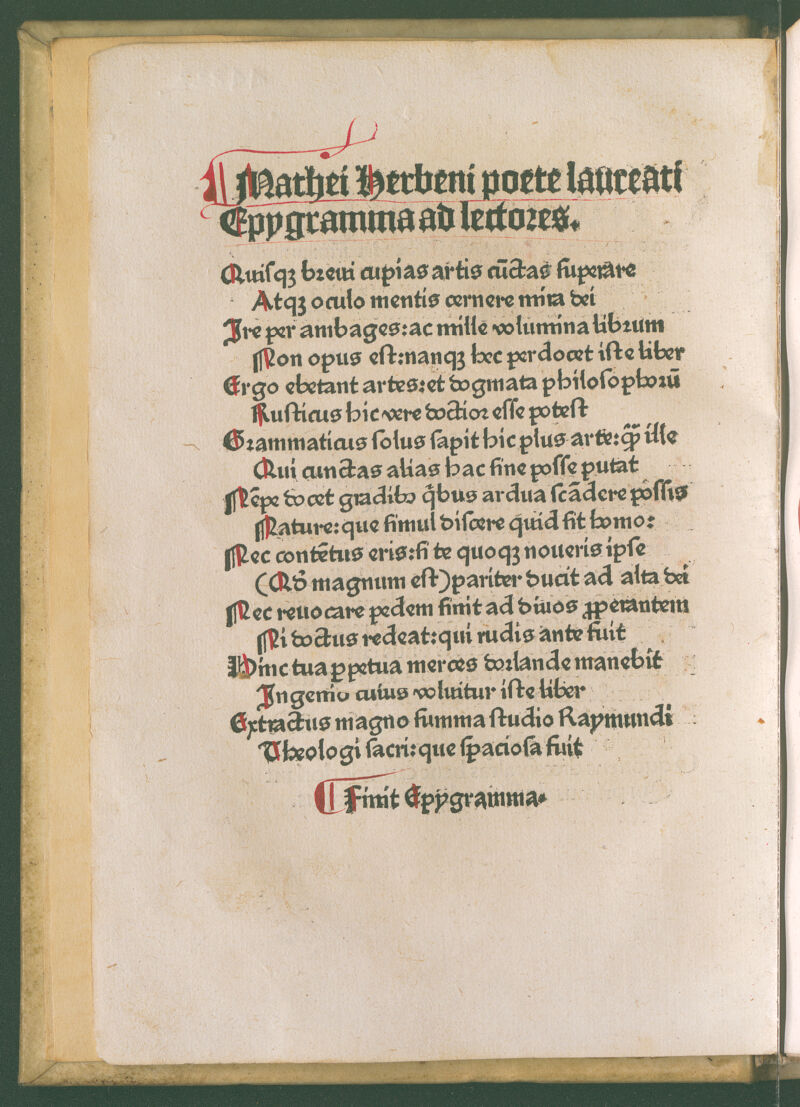 ¶ Mathei Herbeni poete laureati
Epygramma ad lectores.
Quisqꝫ breui cupias artis cūctas superare
Atqꝫ oculo mentis cernere mira dei
Ire per ambages: ac mille volumina librum
Non opus est: nanqꝫ hec perdocet iste liber
Ergo ebetant artes: et dogmata philosophorū
Rusticus hic vere doctior esse potest
Grammaticus solus sapit hic plus arte: q̄ꝫ ille
Qui cunctas alias hac sine posse putat
Nēpe docet gradibꝫ q̇bus ardua scādere possis
Nature: que simul discere quid sit homo:
Nec contētus eris: si te quoqꝫ noueris ipse
(Qḋ magnum est) pariter ducit ad alta dei
Nec reuocare pedem sinit ad diuos ꝓperantem
Ni doctus redeat: qui rudis ante fuit
Hinc tua ꝑpetua merces dorlande manebit
Ingenio cuius voluitur iste liber
Extractus magno summa studio Raymundi
Theologi sacri: que spaciosa fuit
¶ Finit Epygramma.